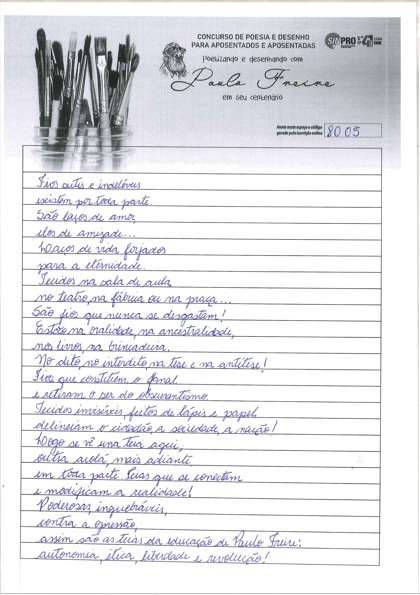 CONCURSO DE POESIA E DESENHO
PARA APOSENTADOS E APOSENTADAS
SINPRO
Poetizando e desenhando com
Paulo Freire
em seu centenário
Anote neste espaço o código
gerado pela inscrição online
8005
Fios sutis e indeléveis
existem por toda parte.
São laços de amor,
elos de amizade...
Laços de vida forjados
para a eternidade.
Tecidos na sala de aula,
no teatro, na fábrica ou na praça...
São fios que nunca se desgastam!
Estão na oralidade, na ancestralidade,
nos livros, na brincadeira.
No dito, no interdito, na tese e na antítese!
Fios que constitem o fanal
e retiram o ser do obscurantismo.
Tecidos invisíxis, feitos de lápis e papel
delineiam o cidadão, a sociedade, a nação!
Logo se vê uma teia aqui,
outra acolá, mais adiante,
em toda parte. Teias que se conectam
e modificam a realidade!
Poderosas, inquebráveis,
contra a opressão,
assim são as teias da educação de Paulo Freire:
autonomia, ética, liberdade e revolução!